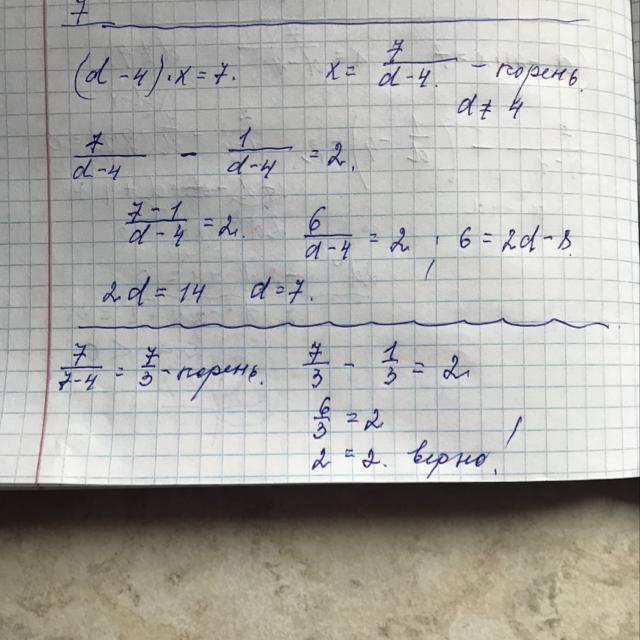 7
(d - 4) · x = 7. x = 7/(d - 4) - корень.
d ≠ 4
7/(d - 4) - 1/(d - 4) = 2.
(7 - 1)/(d - 4) = 2. 6/(d - 4) = 2 ; 6 = 2d - 8.
2d = 14 d = 7.
7/(7 - 4) = 7/3 - корень. 7/3 - 1/3 = 2
6/3 = 2
2 = 2. верно!